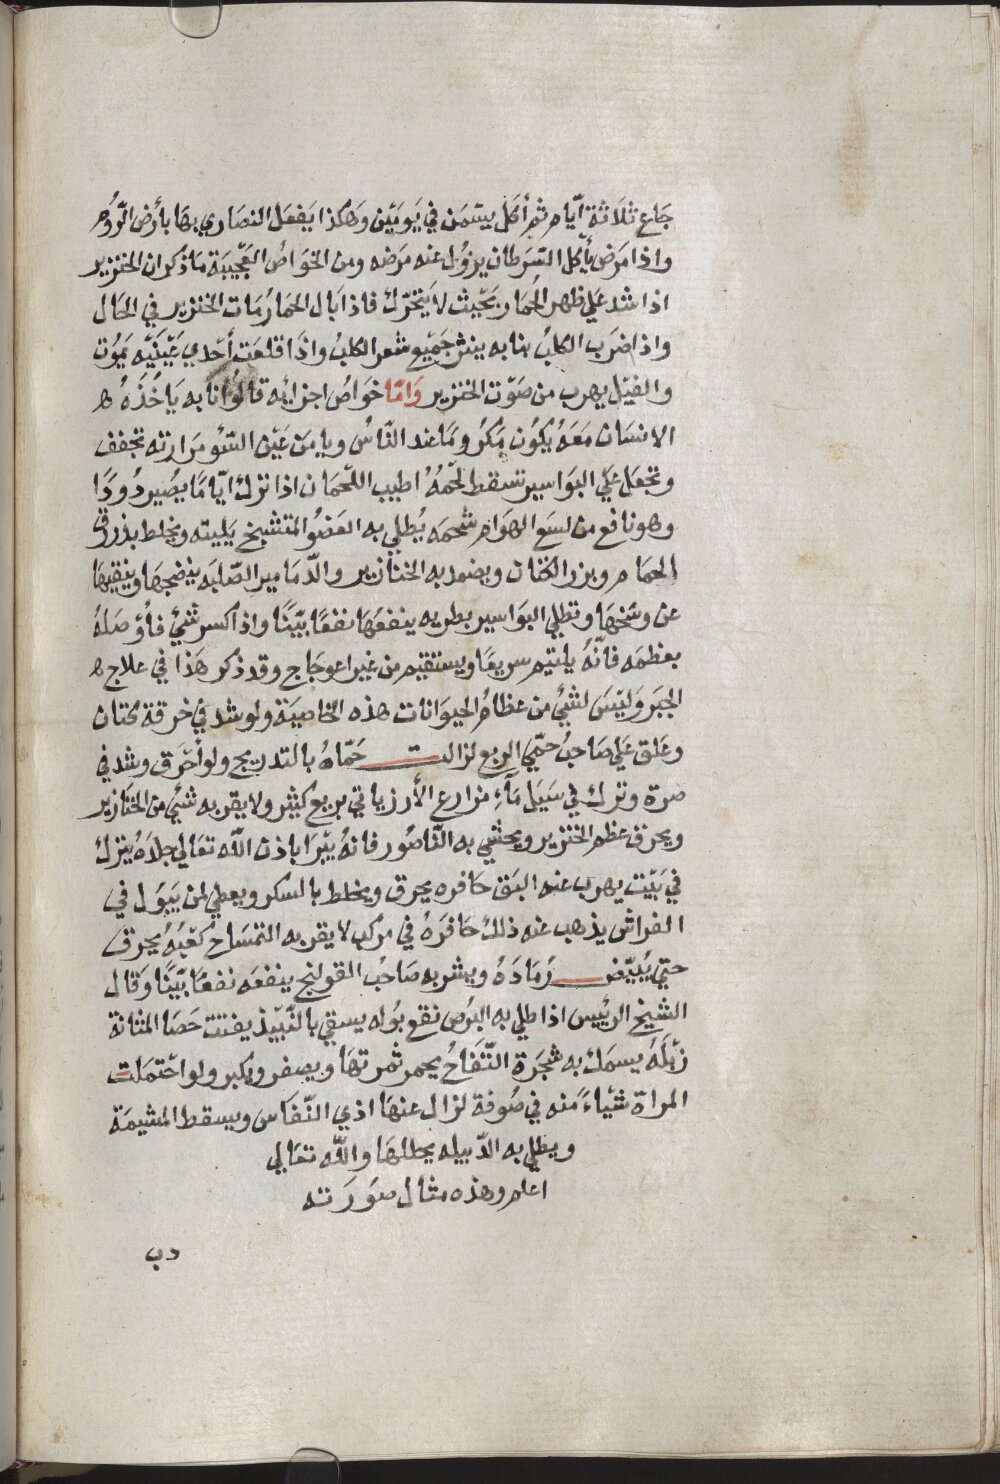 جَاع ثلَاثة ايّام ثم أكل يسَمن في يَومَيْن وَهَكذا يَفعَل النصَاري بها بأرض الرُّوم
واذا مَرض يأكل السَرطان يزوُل عنه مَرضه ومن الخوَاصُ العَجيبَة مَا ذكر ان الخنزير
اذا شد عَلي ظهر الحُمار بحَيث لا يَتحَرّك فاذا بَال الحمار مَات الخنزير في الحَال
واذا ضرَب الكلبُ بنابه ينثر جَميع شعر الكلبُ واذَا قلعَت أحَدي عَيْنيَه يَموُت
والفيَل يهرب من صَوْت الخنزير وَامّا خوَاصُ اجزائه قالوُا نابه يَاخُذَهُ
الانسَان مَعَهُ يَكوُن مُكرُومًا عند النّاسُ ويا من عَيْن السّوُ مرَارته تجفف
وتجعَل عَليّ البوَاسير تسقط لحّمُهُ اطيب اللّحمَان اذا ترك ايّامًا يصُير دُودًا
وهو نافع من لسَع الهوَام شحمَه يُطلي به العَضوُ المتشيخ يَليّنه ويخلط بذرق
الحمَام وبزر الكتان ويضمد به الخنازير والدّمَامير الصّلبَه ينضجهَا وينقيهَا
عن وسَخهَا وتطلي البوَاسير بطريه ينفعَهَا نفعًا بيّنًا واذا كسر شيْ فأوْصَلهُ
بعظمَه فانّهُ يلتيم سريعًا ويستقيم من غير اعوجَاج وقد ذكر هَذا في علاج
الجبَر وَليْسَ لشيْ من عظامُ الحيوَانات هذه الخاصيَة ولو شد في خرقة كتان
وعَلق عَلي صَاحبُ حمّي الربع لزالت حُمّاهُ بالتدريج ولو أحْرَق وشد في
صرة وترك في سَيَل مَآء مزارع الأرز ياتي بريع كثير ولا يقربه شيْ من الخنَازير
ويحرق عظم الخنزير ويحشي به النّاصُور فانهُ يَبْرَا باذن اللّه تعَالي جلدهُ يترك
في بَيْت يهرب عنه البَق حَافره يحرق ويخلط بالسكر ويعطي لمن يَبوُل في
الفراش يذهب عنه ذلك حَافرَهُ في مرَكب لا يقربه التمسَاح كعَبُهُ يحرق
حتي يُبيّض رُمَادهُ ويشربه صَاحبُ القولنج ينفعَه نفعَا بيّنًا وَقال
الشيخ الرئيس اذا طلي به البرُص نفع بوُله يسقي بالنّبيْذ يفتت حَصَا المثَانة
زبْلهُ يسمَك به شجَرة التّفَاحُ يحمر ثمرتهَا ويصفر ويكبر ولو احْتمَلت
المراة شيْاءً منه في صُوفة لزال عنهَا اذي النّفاس ويسقط المشيمَة
ويطلي به الدّبيله يحللهَا واللّه تعَالي
اعلم وهذه مثال صوُرَته
دب